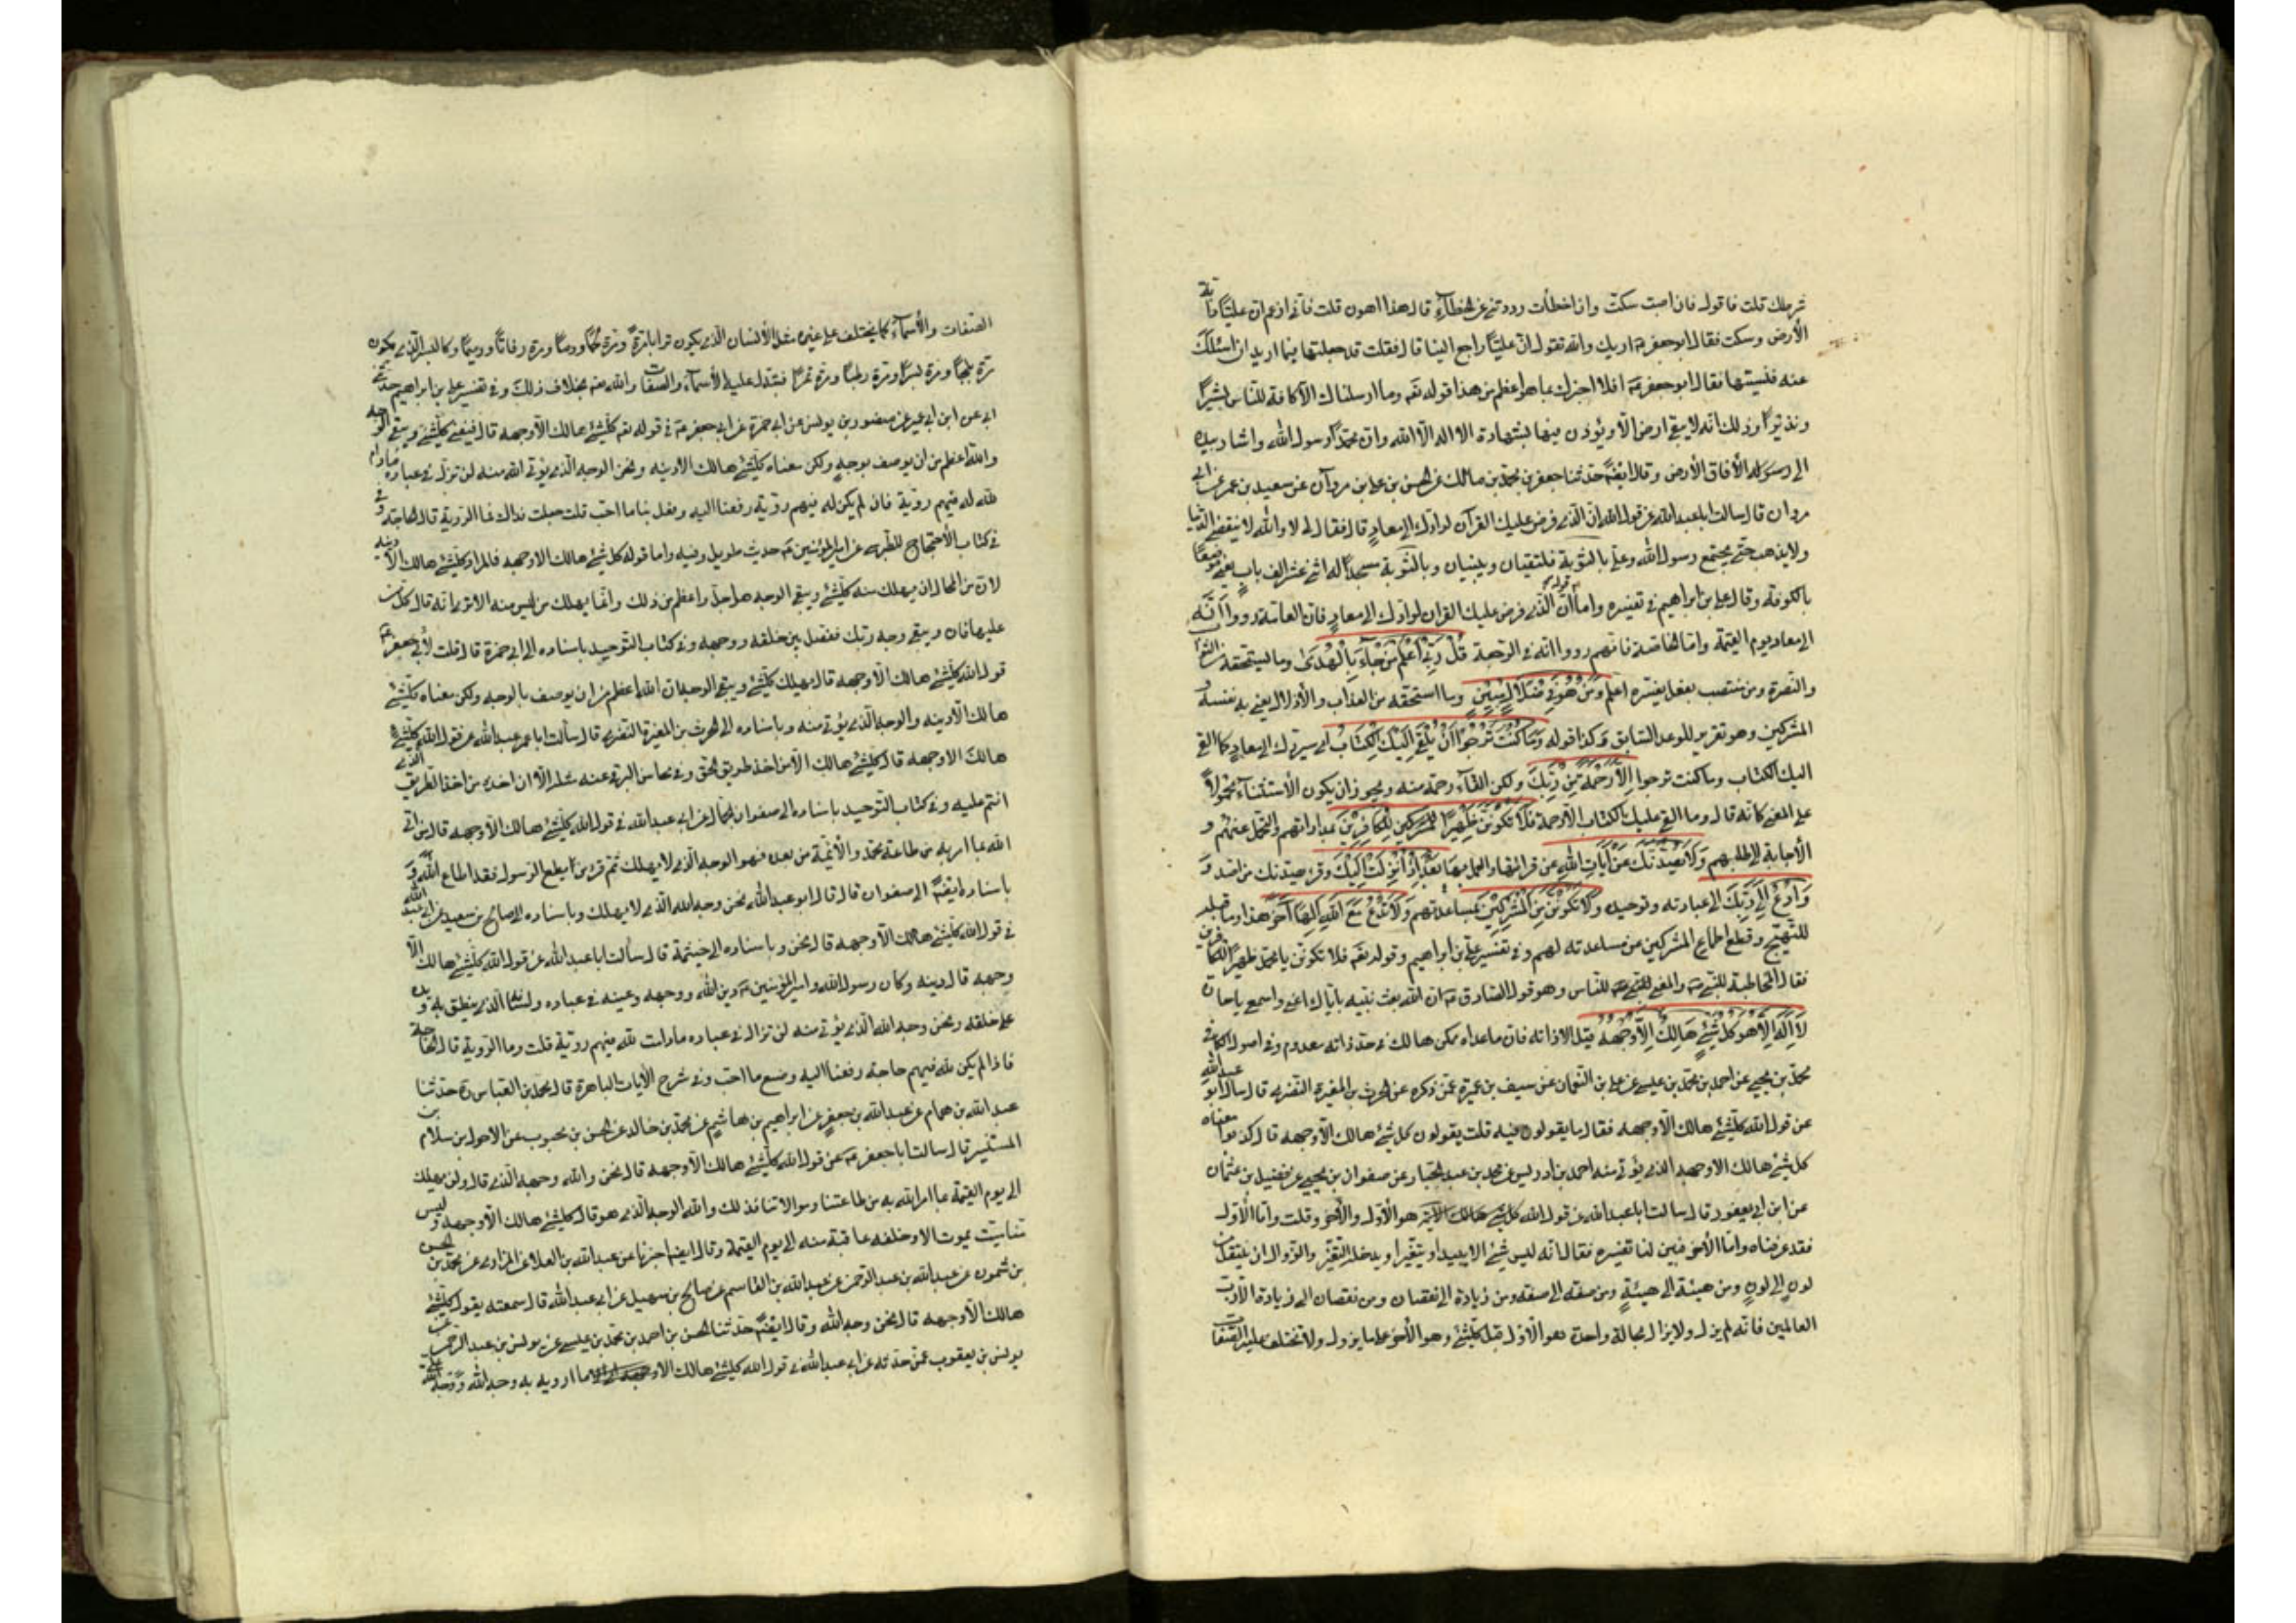 شر ملك قلت فاقول فان اصبت سكتّ وان اخطأت رددتني عن الخطاء قال هذا اهون قلت فاني ازعم ان عليّا دابّة
الأرض وسكت فقال ابو جعفر ع اريك والله تقول انّ عليّا راجع الينا قال فقلت قد جعلتها فيما اريد ان اسئلك
عنه فنسيتها فقال ابو جعفر ع افلا اخبرك بما هو اعظم من هذا قوله تع وما ارسلناك الّا كافة للناس بشيرًا
ونذيرًا وذلك انّه لا يبقى ارض الّا ويؤذن فيها بشهادة ان لا اله الّا الله وانّ محمّدًا رسول الله واشار بيده
الى الأفاق الأرض وقال ايضًا حدّثنا جعفر بن محمّد بن مالك عن الحسن بن علي بن مروان عن سعيد بن عمر عن ابي
مروان قال سالت ابا عبد الله عن قول الله انّ الّذي فرض عليك القرآن لرادّك الى معاد قال فقال لي لا والله لا ينقضي الدّنيا
ولا يذهب حتّى يجتمع رسول الله وعلي بالثوية فيلتقيان ويبنيان وبالثّوية مسجدًا له اثنى عشر الف باب يعني موضعًا
بالكوفة وقال علي بن ابراهيم في تفسيره واما قوله انّ الّذي فرض عليك القران لرادّك الى معادٍ فان العامّة رووا انّه
الى معاد يوم القيمة وامّا الخاصة فانهم رووا انّه في الرجعة قُل رَبّي أعلَمُ مَن جَاءَ بِالهُدى وما يستحقه من الثواب
والنّصرة ومن منتصب بفعل يفسّره اعلم وَمَن هُوَ في ضَلالٍ مُبينٍ وما استحقه من العذاب والأذلال يعني به نفسه و
المشركين وهو تقرير للوعد السّابق وكذا قوله وَمَا كُنتَ تَرجُوا أن يُلقى إلَيكَ الكِتَابُ اي سيردّك الى معادٍ كما القى
اليك الكتاب وما كنت ترجوا إلّا رَحمَةً مِن رَبِّكَ ولكن القاه رحمة منه ويجوز ان يكون الأستثناء محمولًا
على المعنى كانّه قال وما القى عليك الكتاب الّا رحمة فَلا تَكونَنَّ ظَهيرًا لِلكافِرينَ بمداراتهم والتّحمل عنهم و
الأجابة الى طلبهم وَلا يَصُدُّنَّكَ عَن آيَاتِ اللهِ عن قرائتها والعمل بها بَعدَ إذ أُنزِلَت إلَيكَ وقرئ يصدّنك من اصدّ
وَادعُ إلى رَبِّكَ الى عبادته وتوحيده وَلا تَكُونَنَّ مِنَ المُشرِكينَ بمساعدتهم وَلا تَدعُ مَعَ اللهِ إلهًا آخَرَ هذا وما قبله
للتّهييج وقطع اطماع المشركين عن مساعدته لهم وفي تفسير علي بن ابراهيم وقوله تع فلا تكوننّ يا محمّد ظهيرًا للكافرين
فقال المخاطبة للنّبي ص والمعنى للناس وهو قول الصّادق ع ان الله بعث نبيّه باياك اعني واسمع يا جارة
لا إلهَ إلّا هُوَ كُلُّ شَيءٍ هَالِكٌ إلّا وَجهَهُ قيل الا ذاته فان ما عداه ممكن هالك في حدّ ذاته معدوم وفي اصول الكافي
محمّد بن يحيى عن احمد بن محمّد بن عيسى عن علي بن النّعمان عن سيف بن عميرة عمّن ذكره عن الحرث بن المغيرة النّصري قال سال ابو عبد الله
عن قول الله كلّ شئ هالك الّا وجهه فقال ما يقولون فيه قلت يقولون كل شئ هالك الّا وجهه قال
كل شئ هالك الا وجهه الذي يؤتى منه احمد بن ادريس عن محمد بن عبد الجبار عن صفوان بن يحيى عن فضيل بن عثمان
عن ابن ابي يعفور قال سالت ابا عبد الله عن قول الله هو الأوّل والأخر وقلت وامّا الأوّل
فقد عرفناه وامّا الأخر فبيّن لنا تفسيره فقال انّه ليس شئ الا يبيد او يتغيّر او يدخله التغيّر والزّوال او ينتقل من
لون الى لون ومن هيئة الى هيئةٍ ومن صفة الى صفة ومن زيادة الى نقصان ومن نقصان الى زيادة الّا ربّ
العالمين فانّه لم يزل ولا يزال بحالة واحدة هو الأوّل قبل كلّ شئ وهو الأخر على ما لم يزل ولا تختلف عليه الصّفات
الصّفات والأسماء كما يختلف على غيره مثل الأنسان الّذي يكون ترابا مرّة ومرّة لحمًا ودمًا ومرة رفاتًا ورميمًا وكالبسر الّذي يكون
مرّة بلحًا ومرّة بسرًا ومرّة رطبًا ومرّة تمرًا فتبدّل عليه الأسماء والصّفات والله تع بخلاف ذلك وفي تفسير علي بن ابراهيم حدّثني
ابي عن ابن ابي عمير عن منصور بن يونس عن ابي حمزة عن ابي جعفر ع في قوله تع كلّ شئ هالك الّا وجهه قال فيفنى كلّ شئ ويبقى الوجه
والله اعظم من ان يوصف بوجهٍ ولكن معناه كلّ شئ هالك الّا دينه ونحن الوجه الّذي يؤتى الله منه لن نزل في عباده مادام
لله له فيهم رويّة فان لم يكن له فيهم رويّة رفعنا اليه وفعل بنا ما احبّ قلت جعلت فداك فما الرّويّة قال الحاجة وفي
في كتاب الأحتجاج للطبرسي عن امير المؤمنين ع حديث طويل وفيه واما قوله كل شئ هالك الا وجهه فالمراد كلّ شئ هالك الّا دينه
لان من المحال ان يهلك منه كلّ شئ ويبقى الوجه هو اجلّ واعظم من ذلك وانّما يهلك من ليس منه الا ترى انّه قال كلّ من
عليها فان ويبقى وجه ربّك ففصل بين خلقه ووجهه وفي كتاب التّوحيد باسناده الى ابي حمزة قال قلت لأبي جعفر ع
قول الله كلّ شئ هالك الّا وجهه قال يهلك كلّ شئ ويبقى الوجه ان الله اعظم من ان يوصف بالوجه ولكن معناه كلّ شئ
هالك الّا دينه والوجه الّذي يؤتى منه وباسناده الى الحرث بن المغيرة النّصري قال سألت ابا عبد الله عن قول الله كلّ شئ
هالك الا وجهه قال كلّ شئ هالك الّا من اخذ طريق الحق وفي محاسن البرقي عنه مثله الّا ان اخره من اخذ الطريق الّذي
انتم عليه وفي كتاب التّوحيد باسناده الى صفوان الجمّال عن ابي عبد الله في قول الله كلّ شئ هالك الّا وجهه قال من اتى
الله بما امر به من طاعة محمّد والأئمّة من بعده فهو الوجه الّذي لا يهلك ثمّ قرء من يطع الرّسول فقد اطاع الله و
باسناده ايضًا الى صفوان قال قال ابو عبد الله نحن وجه الله الّذي لا يهلك وباسناده الى صالح بن سعيد عن ابي عبد الله
في قول الله كلّ شئ هالك الّا وجهه قال نحن وباسناده الى خيثمة قال سألت ابا عبد الله عن قول الله كلّ شئ هالك الّا
وجهه قال دينه وكان رسول الله وامير المؤمنين ع دين الله ووجهه وعينه في عباده ولسانه الّذي ينطق به و يده
على خلقه ونحن وجه الله الّذي يؤتى منه لن نزال في عباده مادامت لله فيهم رويّة قلت وما الرّويّة قال الحاجة
فاذا لم يكن لله فيهم حاجة رفعنا اليه وصنع ما احبّ وفي شرح الأيات الباهرة قال محمّد بن العبّاس ره حدّثنا
عبد الله بن همام عن عبد الله بن جعفر عن ابراهيم بن هاشم عن محمّد بن خالد عن الحسن بن محبوب عن الاحول بن سلام بن
المستنير قال سالت ابا جعفر ع عن قول الله كلّ شئ هالك الّا وجهه قال نحن والله وجهه الّذي قال ولن يهلك
الى يوم القيمة بما امر الله به من طاعتنا وموالاتنا فذلك والله الوجه الّذي هو قال كلّ شئ هالك الّا وجهه و ليس
منّا ميّت يموت الا وخلفه عاقبة منه الى يوم القيمة وقال ايضا اخبرنا عن عبد الله بن العلاء المزاري عن محمّد بن الحسن
بن شمون عن عبد الله بن عبد الرّحمن عن عبد الله بن القاسم عن صالح بن سهل عن ابي عبد الله قال سمعته يقول كلّ شئ
هالك الّا وجهه قال نحن وجه الله وقال ايضًا حدّثنا الحسن بن احمد بن محمّد بن عيسى عن يونس بن عبد الرّحمن عن
يونس بن يعقوب عمّن حدّثه عن ابي عبد الله في قول الله كلّ شئ هالك الا ما اريد به وجه الله ووجه الله علي